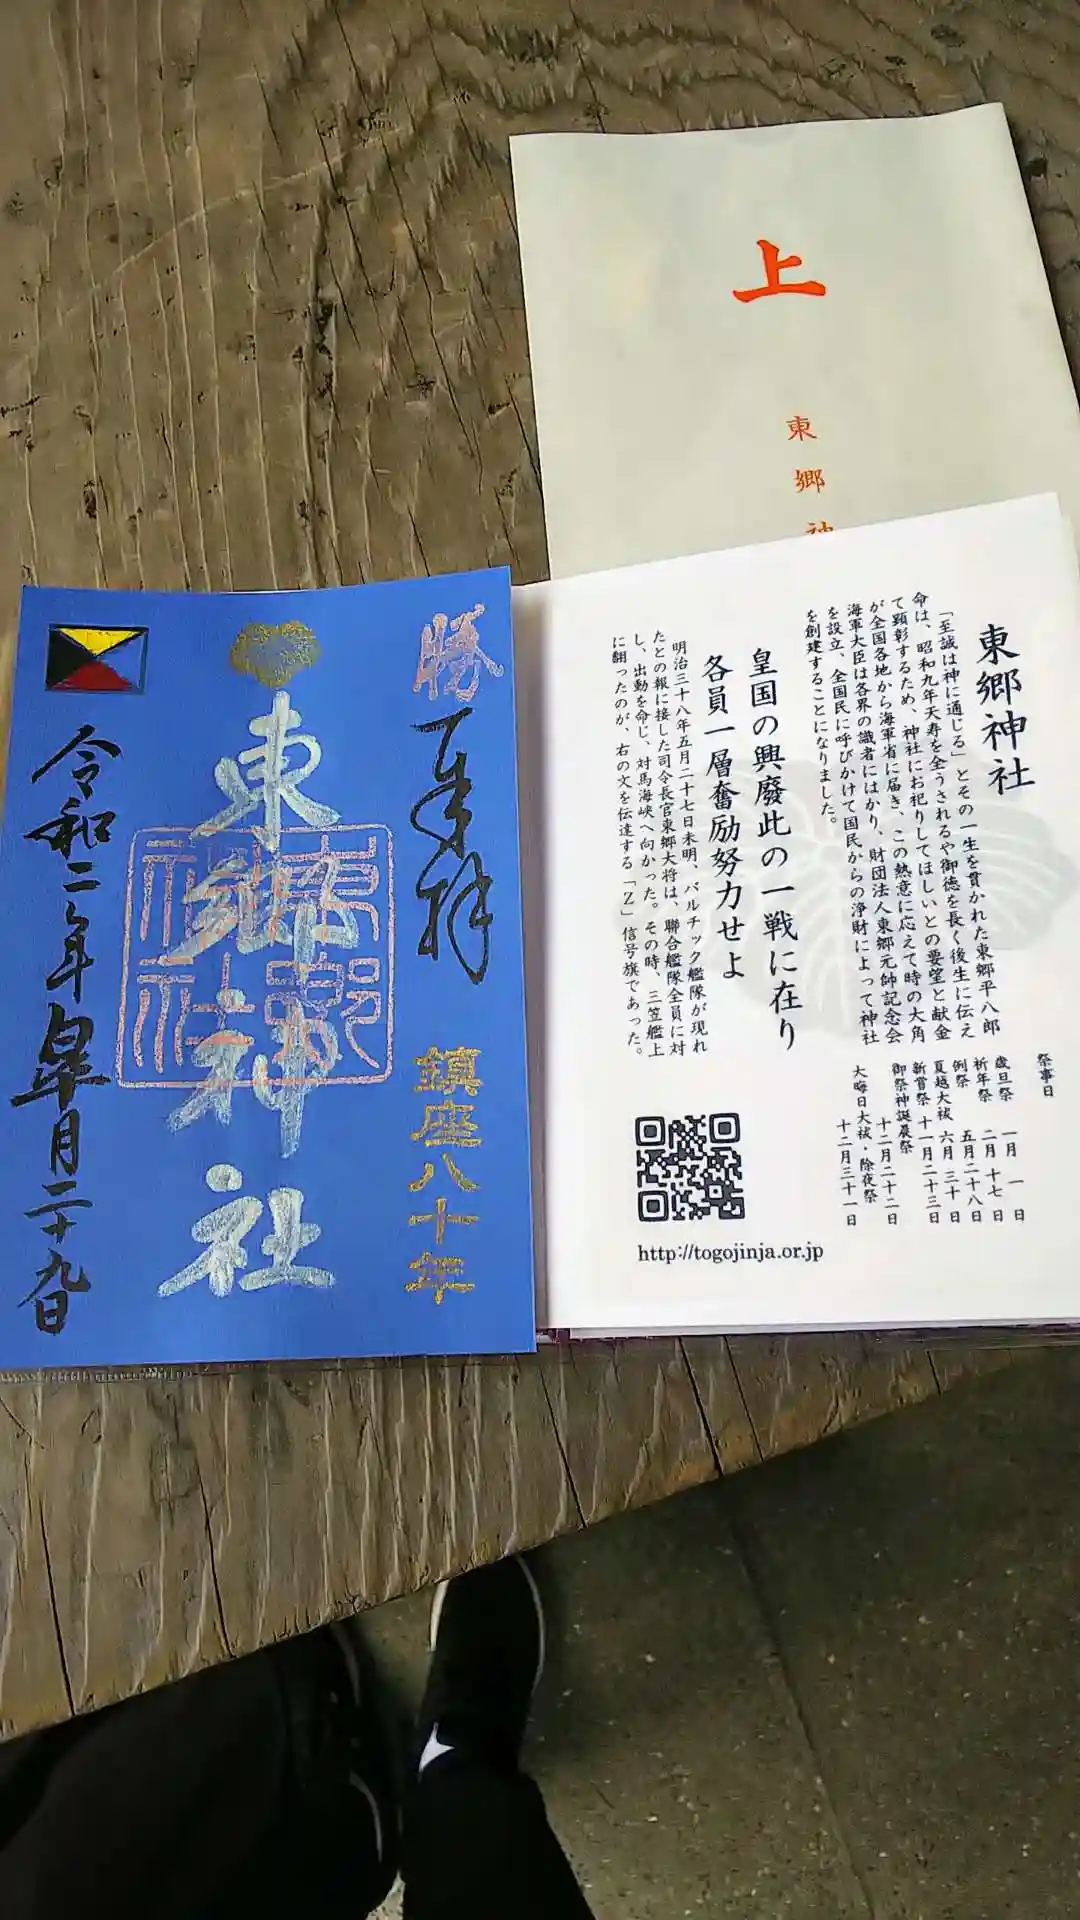 上
東郷神
勝
奉拝
鎮座八十年
東郷神社
東郷神社
令和二年皐月二十九日
東郷神社
「至誠は神に通じる」とその一生を貫かれた東郷平八郎
命は、昭和九年天寿を全うされるや御徳を長く後生に伝え
て顕彰するため、神社にお祀りしてほしいとの要望と献金
が全国各地から海軍省に届き、この熱意に応えて時の大角
海軍大臣は各界の識者にはかり、財団法人東郷元帥記念会
を設立、全国民に呼びかけて国民からの浄財によって神社
を創建することになりました。
皇国の興廃此の一戦に在り
各員一層奮励努力せよ
明治三十八年五月二十七日未明、バルチック艦隊が現れ
たとの報に接した司令長官東郷大将は、聯合艦隊全員に対
し、出動を命じ、対馬海峡へ向かった。その時、三笠艦上
に翻ったのが、右の文を伝達する「Z」信号旗であった。
祭事日
歳旦祭 一月 一日
祈年祭 二月 十七日
例祭 五月二十八日
夏越大祓 六月 三十日
新嘗祭 十一月二十三日
御祭神誕晨祭
十二月二十二日
大晦日大祓・除夜祭
十二月三十一日
http://togojinja.or.jp